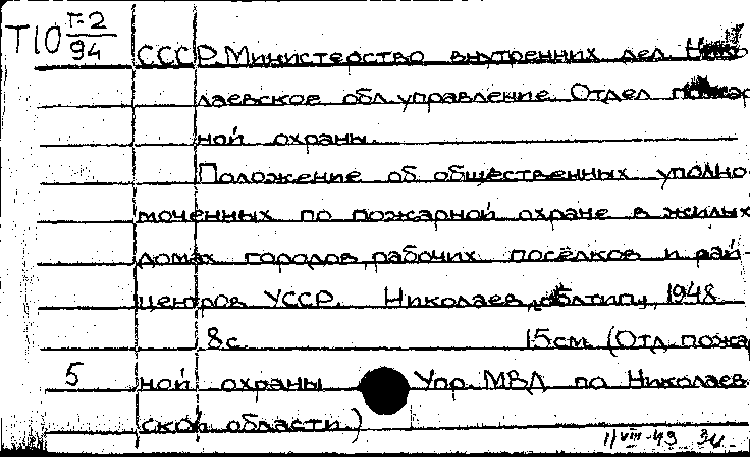 Т10 Г-2
94
СССР. Министерство внутренних дел. Нико
лаевское обл. управление. Отдел пожар
ной охраны.
Положение об общественных уполно
моченных по пожарной охране в жилых
домах городов, рабочих посёлков и рай-
центров УССР. Николаев, облтип, 1948
8 с. 15 см. (Отд. пожа
5 ной охраны Упр. МВД по Николаев
ской области)
11/VIII-49